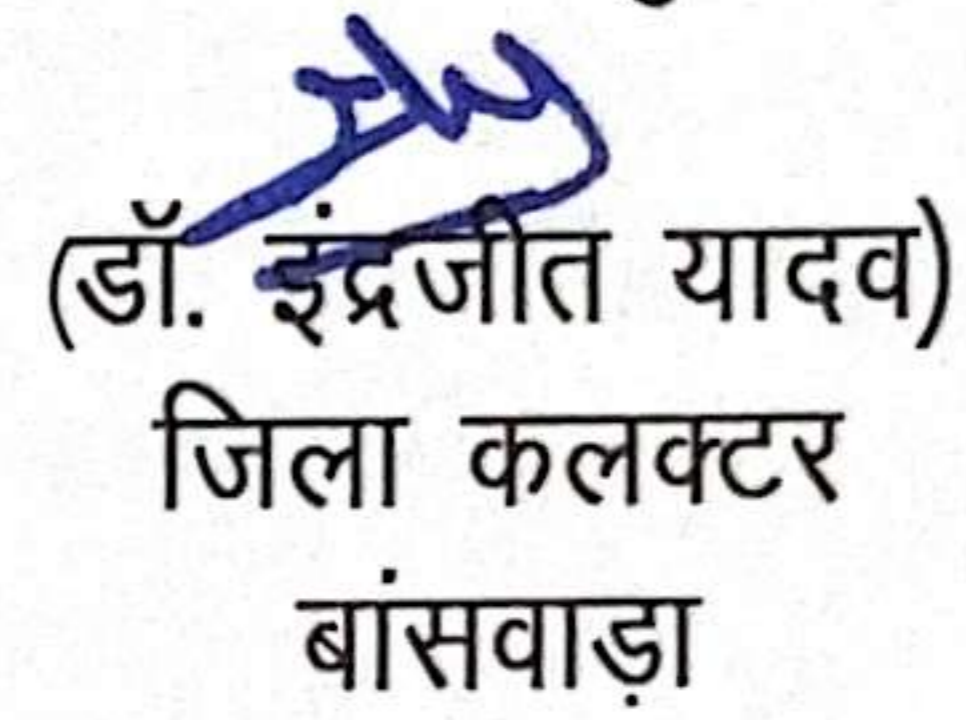 (डॉ. इंद्रजीत यादव)
जिला कलक्टर
बांसवाड़ा